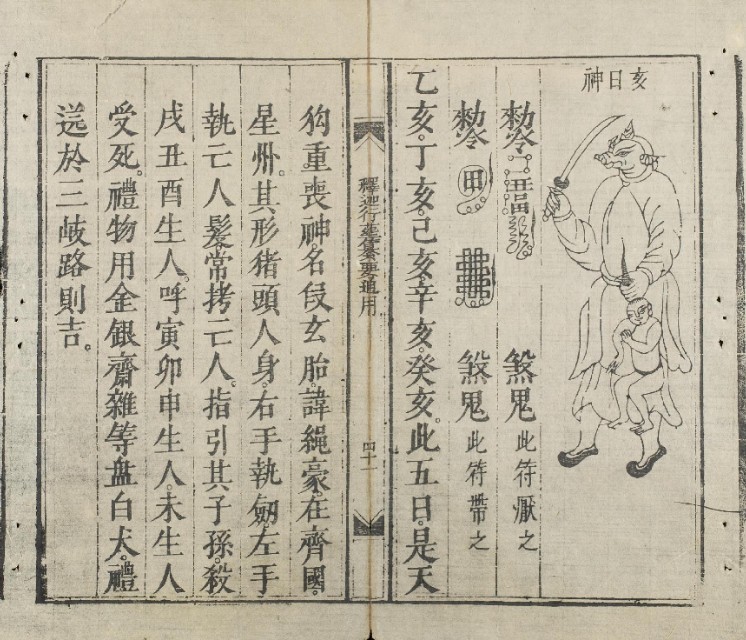 亥日神
勅令 煞鬼此符厭之
勅令 煞鬼此符帶之
乙亥。丁亥。己亥。辛亥。癸亥。此五日。是天
釋迦行喪備要通用
四十一
狗重喪神。名 玄胎。諱繩豪。在齊國。
星州。其形猪頭人身。右手執劔。左手
執亡人髮常拷亡人。指引其子孫。殺
戌丑酉生人。呼寅卯申生人未生人
受死。禮物用金銀齋雜等盘白犬。禮
送於三岐路則吉。